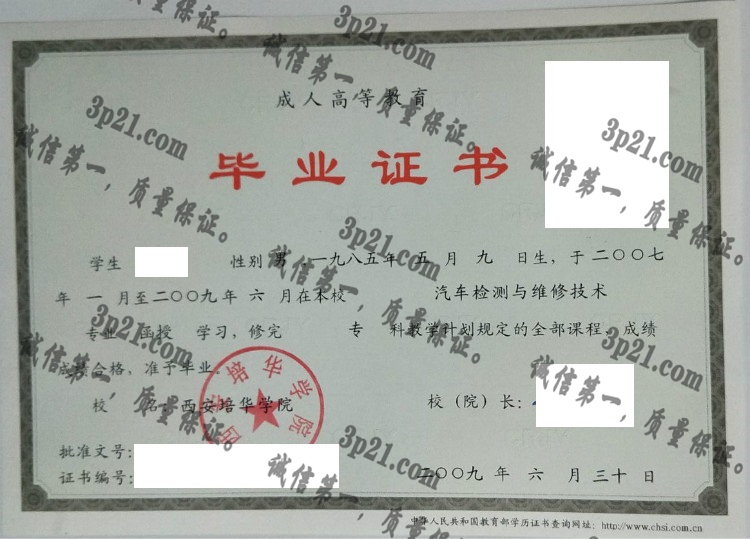 成人高等教育
毕业证书
学生 性别 男 一九八五年 五 月 九 日生，于二〇〇七
年 一 月至二〇〇九年 六 月在本校 汽车检测与维修技术
专业 函授 学习，修完 专 科教学计划规定的全部课程，成绩
成绩合格，准予毕业。
校 名：西安培华学院 校（院）长：
批准文号：
证书编号：
二〇〇九 年 六 月 三十 日
中华人民共和国教育部学历证书查询网址：http://www.chsi.com.cn
西安培华学院
3p21.com
诚信第一，质量保证。
3p21.com
诚信第一，质量保证。
3p21.com
诚信第一，质量保证。
3p21.com
诚信第一，质量保证。
3p21.com
诚信第一，质量保证。
3p21.com
诚信第一，质量保证。
3p21.com
诚信第一，质量保证。
3p21.com
诚信第一，质量保证。
3p21.com
诚信第一，质量保证。